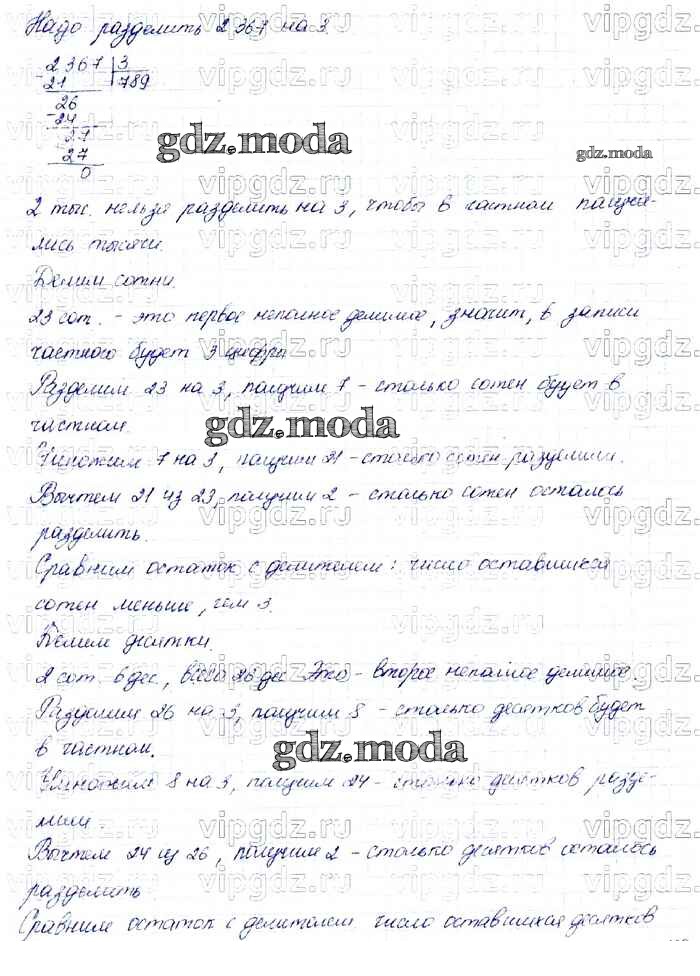 Надо разделить 2 367 на 3.
2 367 | 3
21 789
26
24
27
27
0
gdz.moda
gdz.moda
2 тыс. нельзя разделить на 3, чтобы в частном получи-
лись тысячи.
Делим сотни.
23 сот. - это первое неполное делимое, значит, в записи
частного будет 3 цифры
Разделим 23 на 3, получим 7 - столько сотен будет в
частном.
gdz.moda
Умножим 7 на 3, получим 21 - столько сотен разделили.
Вычтем 21 из 23, получим 2 - столько сотен осталось
разделить.
Сравним остаток с делителем: число оставшихся
сотен меньше, чем 3.
Делим десятки.
2 сот. 6 дес., всего 26 дес Это - второе неполное делимое.
Разделим 26 на 3, получим 8 - столько десятков будет
в частном.
gdz.moda
Умножим 8 на 3, получим 24 - столько десятков разде-
лили
Вычтем 24 из 26, получим 2 - столько десятков осталось
разделить
Сравним остаток с делителем число оставшихся десятков
vipgdz.ru